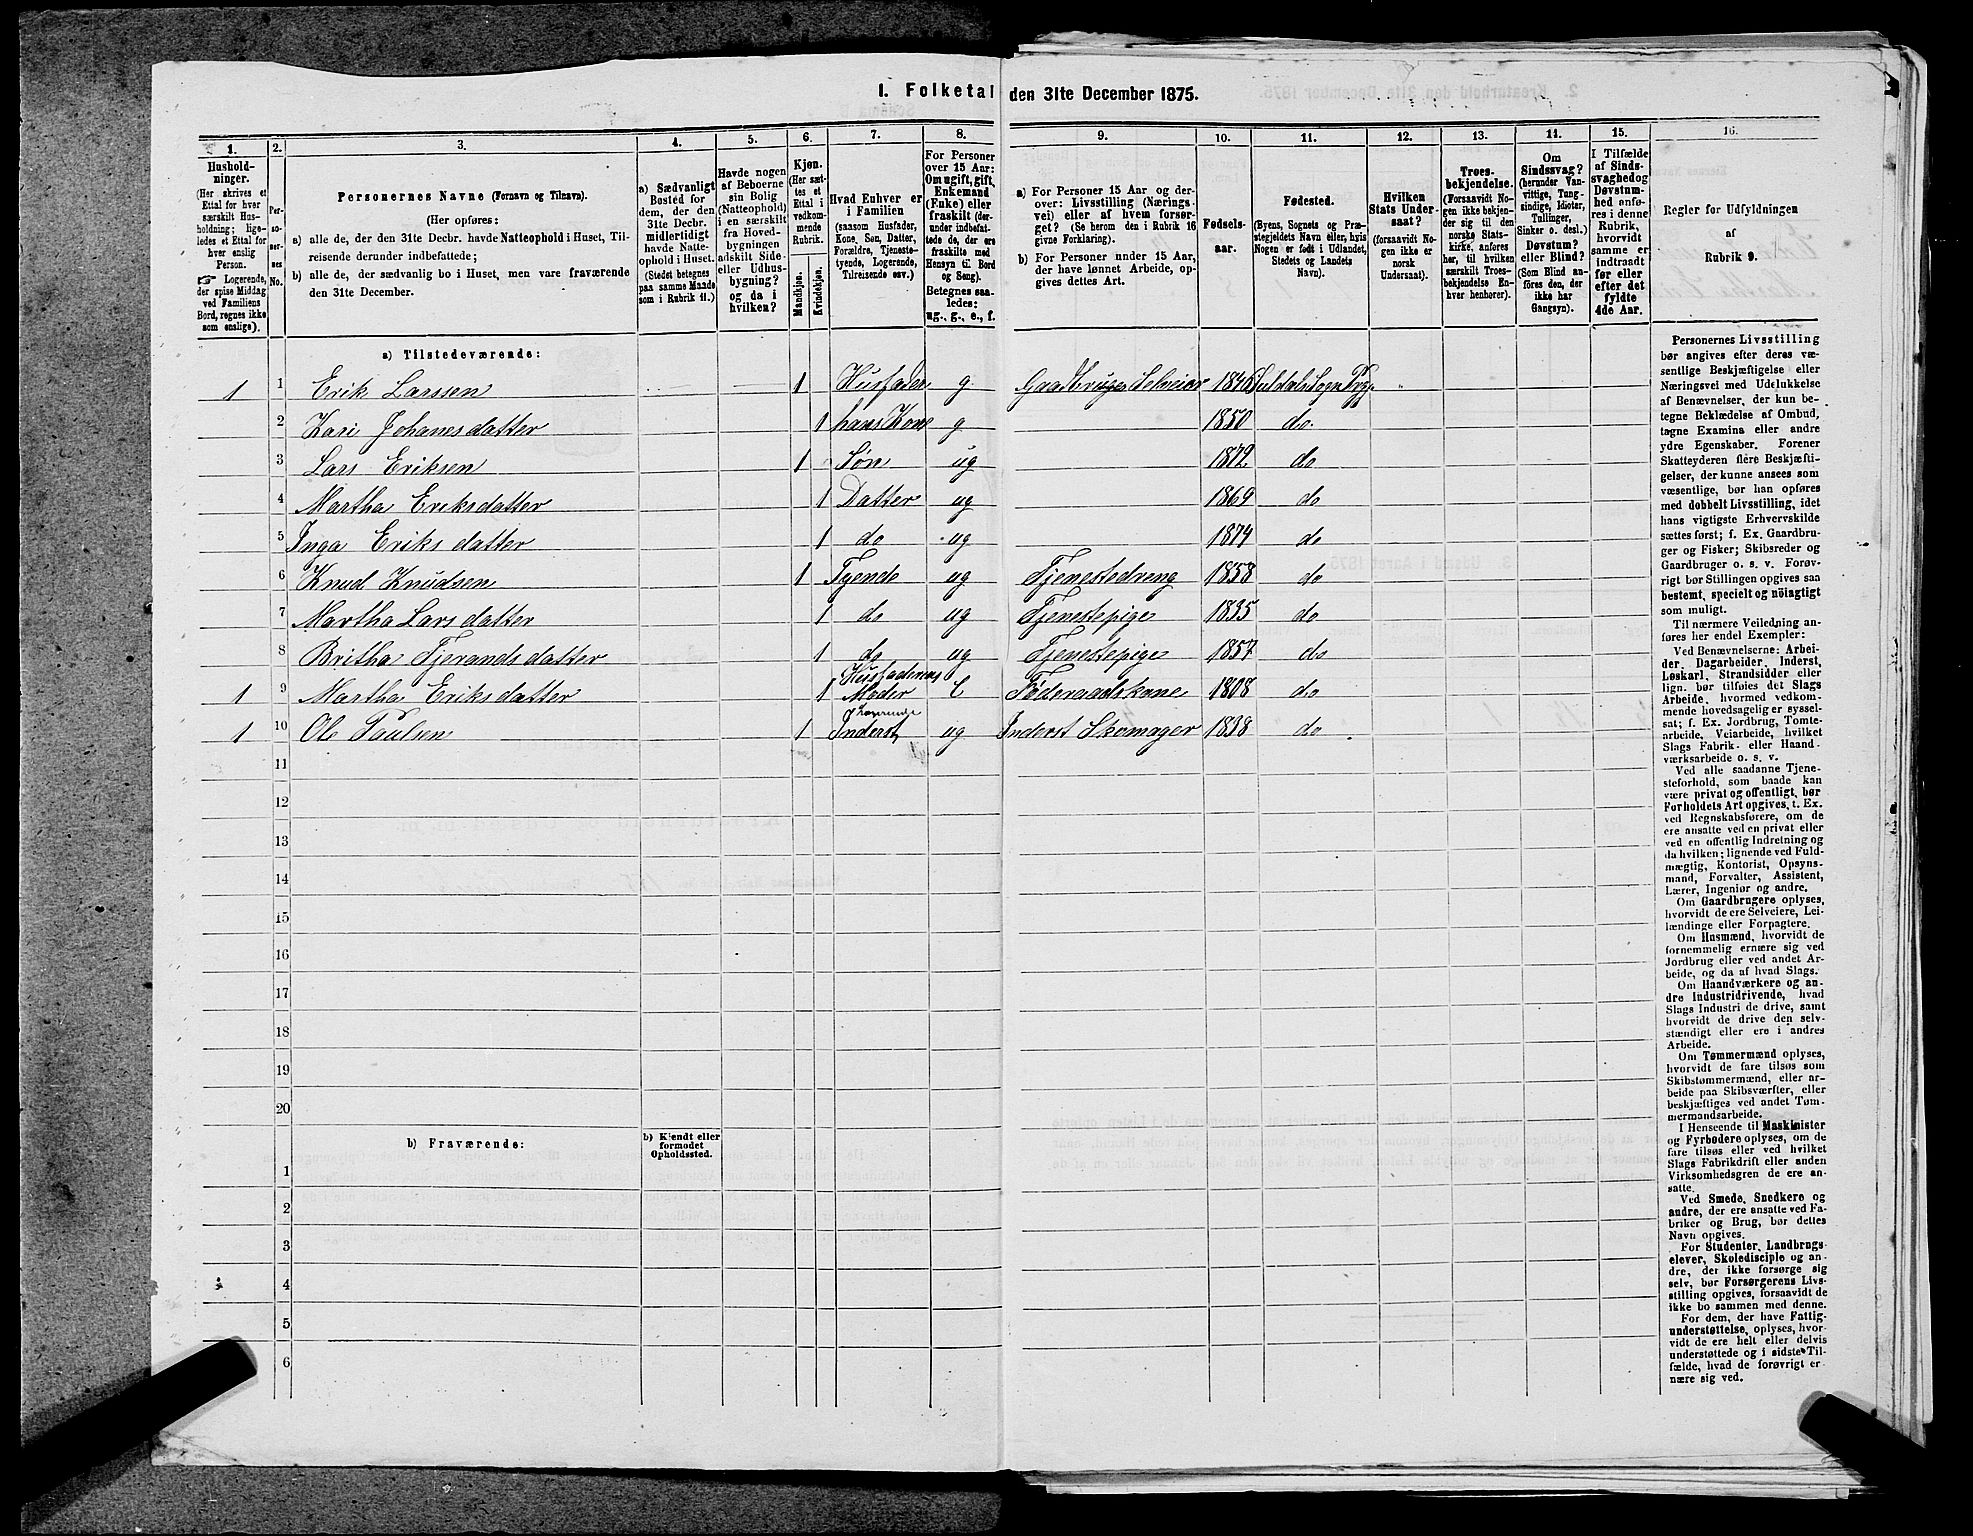 1. Folketal den 31te December 1875.
1. 2. 3. 4. 5. 6. 7. 8. 9. 10. 11. 12. 13. 14. 15. 16.
Hushold-
ninger.
(Her skrives et
Ettal for hver
særskilt Hus-
holdning; lige-
ledes et Ettal for
hver enslig
Person.
☞ Logerende,
der spise Middag
ved Familiens
Bord, regnes ikke
som enslige).
Per-
so-
ner-
nes
No.
Personernes Navne (Fornavn og Tilnavn).
(Her opføres:
a) alle de, der den 31te Decbr. havde Natteophold i Huset, Til-
reisende derunder indbefattede;
b) alle de, der sædvanlig bo i Huset, men vare fraværende
den 31te December.
a) Sædvanligt
Bosted for
dem, der den
31te Decbr.
midlertidigt
havde Natte-
ophold i Huset.
(Stedet betegnes
paa samme Maade
som i Rubrik 11.)
Havde nogen
af Beboerne
sin Bolig
(Natteophold)
i en særskilt
fra Hoved-
bygningen
adskilt Side-
eller Udhus-
bygning?
og da i
hvilken?
Kjøn.
(Her sæt-
tes et
Ettal i
vedkom-
mende
Rubrik.
Mandkjøn.
Kvindekjøn.
Hvad Enhver er
i Familien
(saasom Husfader,
Kone, Søn, Datter,
Forældre, Tjeneste-
tyende, Logerende,
Tilreisende osv.)
For Personer
over 15 Aar:
Om ugift, gift,
Enkemand
(Enke) eller
fraskilt (der-
under indbefat-
tede de, der ere
fraskilte med
Hensyn til Bord
og Seng).
Betegnes saa-
ledes:
ug., g., e., f.
a) For Personer 15 Aar og der-
over: Livsstilling (Nærings-
vei) eller af hvem forsør-
get? (Se herom den i Rubrik 16
givne Forklaring).
b) For Personer under 15 Aar,
der have lønnet Arbeide, op-
gives dettes Art.
Fødsels-
aar.
Fødested.
(Byens, Sognets og Præ-
stegjeldets Navn eller, hvis
Nogen er født i Udlandet,
Stedets og Landets
Navn).
Hvilken
Stats Under-
saat?
(forsaavidt No-
gen ikke er
norsk
Undersaat).
Troes-
bekjendelse.
(Forsaavidt No-
gen ikke bekjen-
der sig til den
norske Stats-
kirke, anføres
her, til hvilken
særskilt Troes-
bekjendelse En-
hver henhører).
Om
Sindssvag?
(herunder Van-
vittige, Tung-
sindige, Idioter,
Tullinger,
Sinker o. desl.)
Døvstum?
eller Blind?
(Som Blind an-
føres den, der
ikke har
Gangsyn).
I Tilfælde
af Sinds-
svaghed og
Døvstum-
hed anfø-
res i denne
Rubrik,
hvorvidt
samme er
indtraadt
før eller
efter det
fyldte
4de Aar.
Regler for Udfyldningen
af
Rubrik 9.
a) Tilstedeværende:
1 1 Erik Larssen 1 Husfader g. Gaardbruger Selveier 1846 Suldals Sogn Præg
2 Kari Johanesdatter 1 hans Kone g 1850 do.
3 Lars Eriksen 1 Søn ug 1872 do
4 Martha Eriksdatter 1 Datter ug 1869 do
5 Inga Eriksdatter 1 do ug 1874 do
6 Knud Knudsen 1 Tyende ug Tjenestedreng 1858 do
7 Martha Larsdatter 1 do ug Tjenestepige 1835 do
8 Britha Tjerandsdatter 1 do ug Tjenestepige 1857 do
1 9 Martha Eriksdatter 1 Husfaderens Moder e Føderaadskone 1808 do
1 10 Ole Paulsen 1 Logerende Inderst ug Inderst Skomager 1838 do
11
12
13
14
15
16
17
18
19
20
b) Fraværende:
b) Kjendt eller
formodet
Opholdssted.
1
2
3
4
5
6
Personernes Livsstilling
bør angives efter deres væ-
sentlige Beskjæftigelse eller
Næringsvei med Udelukkelse
af Benævnelser, der kun be-
tegne Beklædelse af Ombud,
tagne Examina eller andre
ydre Egenskaber. Forener
Skatteyderen flere Beskjæfti-
gelser, der kunne ansees som
væsentlige, bør han opføres
med dobbelt Livsstilling, idet
hans vigtigste Erhvervskilde
sættes først; f. Ex. Gaardbru-
ger og Fisker; Skibsreder og
Gaardbruger o. s. v. Forøv-
rigt bør Stillingen opgives saa
bestemt, specielt og nöiagtigt
som muligt.
Til nærmere Veiledning an-
føres her endel Exempler:
Ved Benævnelserne: Arbei-
der, Dagarbeider, Inderst,
Løskarl, Strandsidder eller
lign. bør tilføies det Slags
Arbeide, hvormed vedkom-
mende hovedsagelig er syssel-
sat; f. Ex. Jordbrug, Tomte-
arbeide, Veiarbeide, hvilket
Slags Fabrik- eller Haand-
værksarbeide o. s. v.
Ved alle saadanne Tjene-
steforhold, som baade kan
være privat og offentligt, bør
Forholdets Art opgives, t. Ex.
ved Regnskabsførere, om de
ere ansatte ved en privat eller
ved en offentlig Indretning og
da hvilken; lignende ved Fuld-
mægtig, Kontorist, Opsyns-
mand, Forvalter, Assistent,
Lærer, Ingeniør og andre.
Om Gaardbrugere oplyses,
hvorvidt de ere Selveiere, Lei-
lændinge eller Forpagtere.
Om Husmænd, hvorvidt de
fornemmelig ernære sig ved
Jordbrug eller ved andet Ar-
beide, og da af hvad Slags.
Om Haandværkere og an-
dre Industridrivende, hvad
Slags Industri de drive, samt
hvorvidt de drive den selv-
stændigt eller ere i andres
Arbeide.
Om Tømmermænd oplyses,
hvorvidt de fare tilsøs som
Skibstømmermænd, eller ar-
beide paa Skibsværfter, eller
beskjæftiges ved andet Tøm-
mermandsarbeide.
I Henseende til Maskinister
og Fyrbødere oplyses, om de
fare tilsøs eller ved hvilket
Slags Fabrikdrift eller anden
Virksomhedsgren de ere an-
satte.
Ved Smede, Snedkere og
andre, der ere ansatte ved Fa-
briker og Brug, bør dettes
Navn opgives.
For Studenter, Landbrugs-
elever, Skoledisciple og an-
dre, der ikke forsørge sig
selv, bør Forsørgerens Livs-
stilling opgives, forsaavidt de
ikke bo sammen med denne.
For dem, der have Fattig-
understøttelse, oplyses, hvor-
vidt de ere helt eller delvis
understøttede og i sidste Til-
fælde, hvad de forøvrigt er-
nære sig ved.